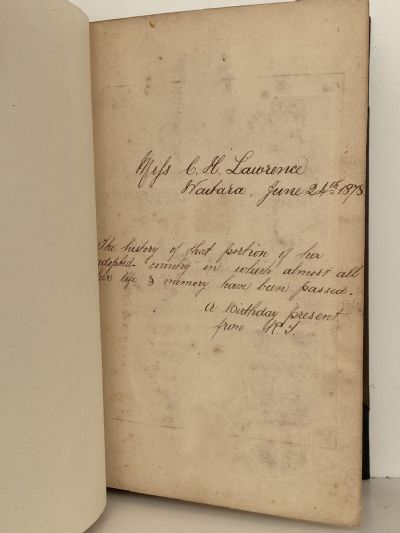 Miss C. H. Lawrence
Waitara, June 24th 1878
The history of that portion of her
adopted country in which almost all
her life & memory have been passed.
A Birthday present
from